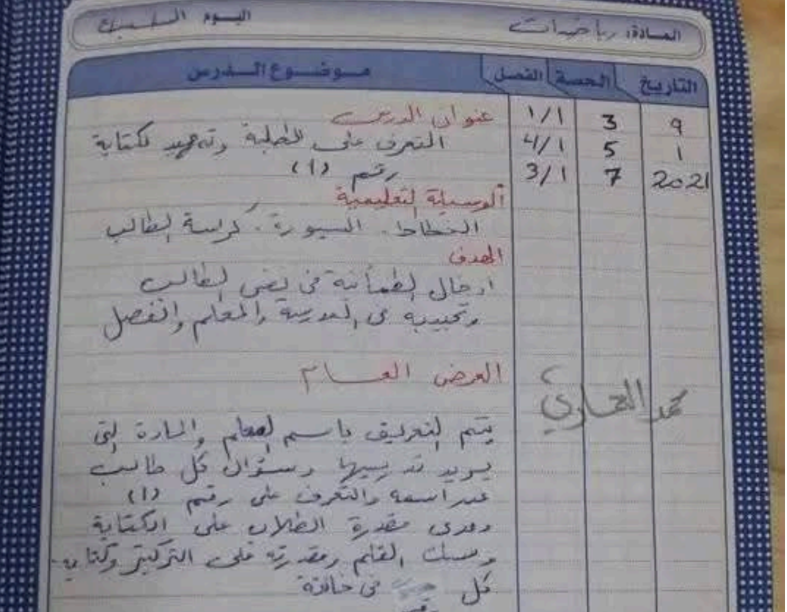 المادة: رياضيات اليوم السبت
التاريخ الحصة الفصل موضوع الدرس
9 3 1/1 عنوان الدرس
1 5 4/1 التعرف على الطلبة وتمهيد لكتابة
2021 7 3/1 رقم (1)
الوسيلة التعليمية
الطباشير. السبورة. كراسة الطالب
الهدف
ادخال الطمأنة في نفس الطالب
وتحبيبه في المدرسة والمعلم والفصل
العرض العام
محمد
يتم التعريف باسم المعلم والمادة التي
يريد تدريسها وسؤال كل طالب
عن اسمه والتعرف على رقم (1)
ومدى مقدرة الطلاب على الكتابة
ومسك القلم ومقدرته على التركيز وكتابة
كل في خانته